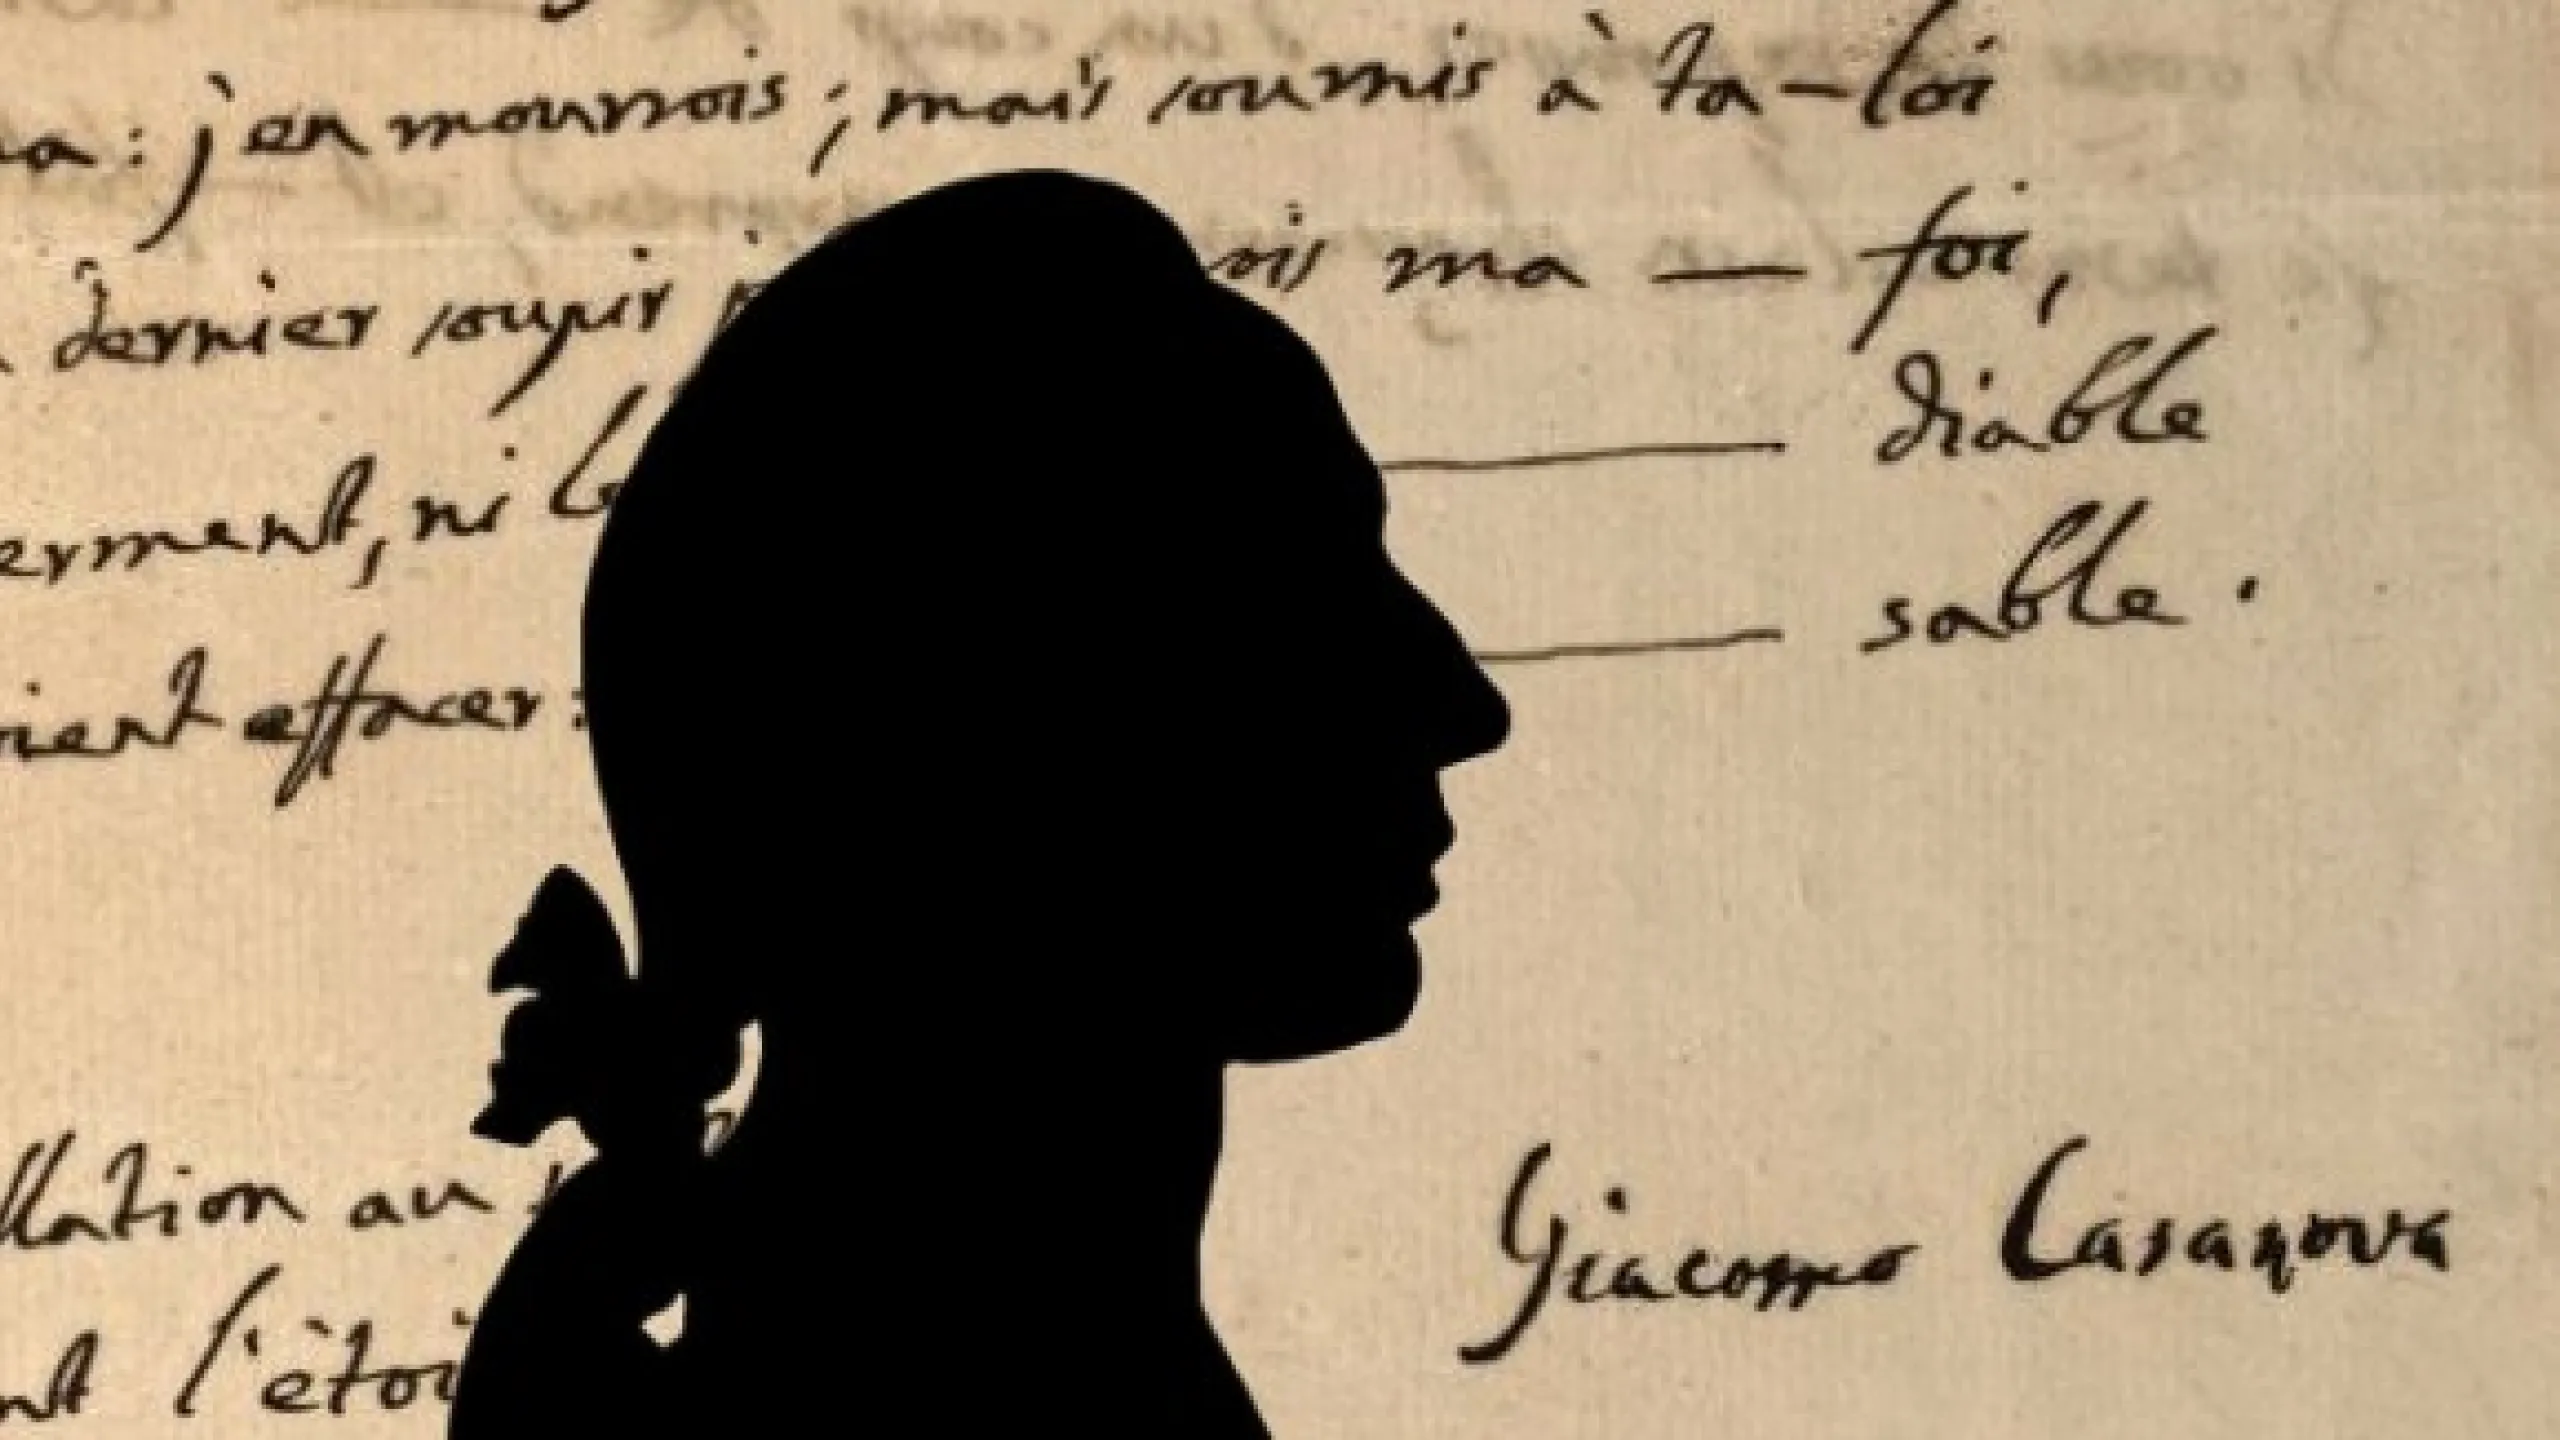 na : j'en mourrois ; mais soumis à ta - loi
dernier soupir j ois ma — foi,
erment, ni le diable
oient effacer : sable.
llation au
Giacomo Casanova
nt l'étoi